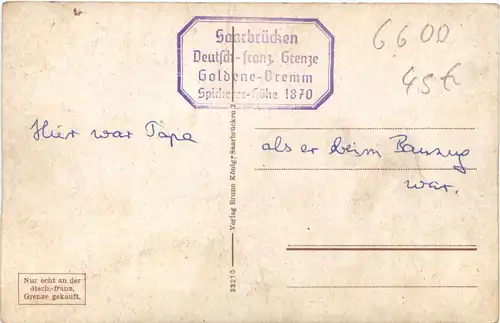 Saarbrücken
Deutsch-franz. Grenze
Goldene-Bremm
Spicherer-Höhe 1870
6600
45
Hier war Papa
als er beim Bauzug
war.
Verlag Bruno König, Saarbrücken 2
33210
Nur echt an der
dtsch.-franz.
Grenze gekauft.